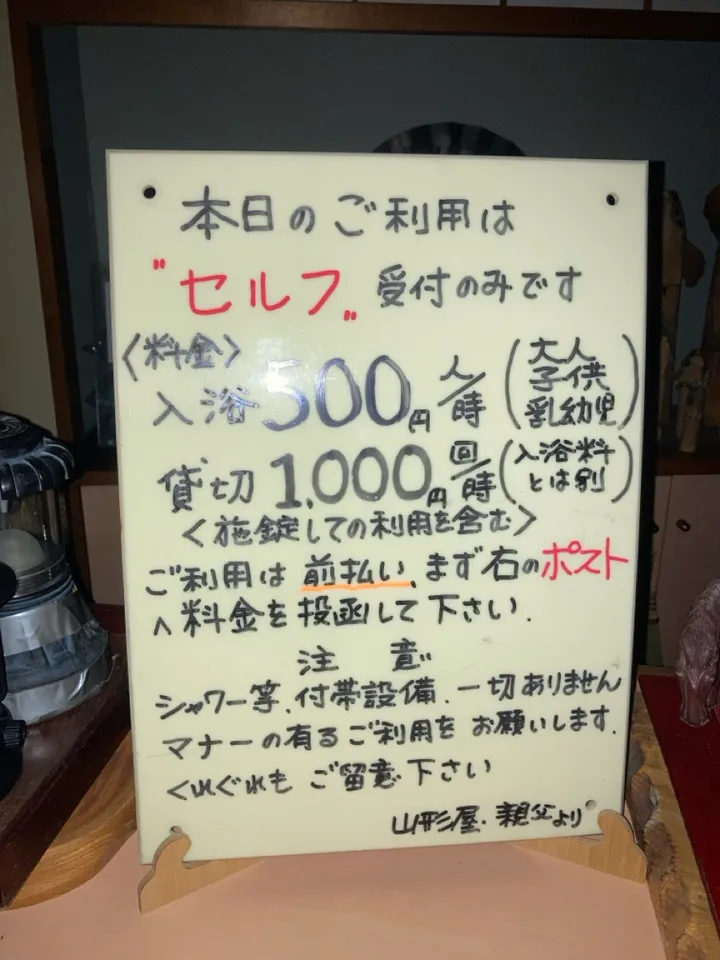 本日のご利用は
"セルフ" 受付のみです
〈料金〉
入浴 500円 人/時 (大人 子供 乳幼児)
貸切 1,000円 回/時 (入浴料とは別)
〈施錠しての利用を含む〉
ご利用は 前払い、まず右のポスト
へ料金を投函して下さい.
注 意
シャワー等、付帯設備、一切ありません
マナーの有るご利用を お願いします.
くれぐれも ご留意下さい
山形屋・親父より